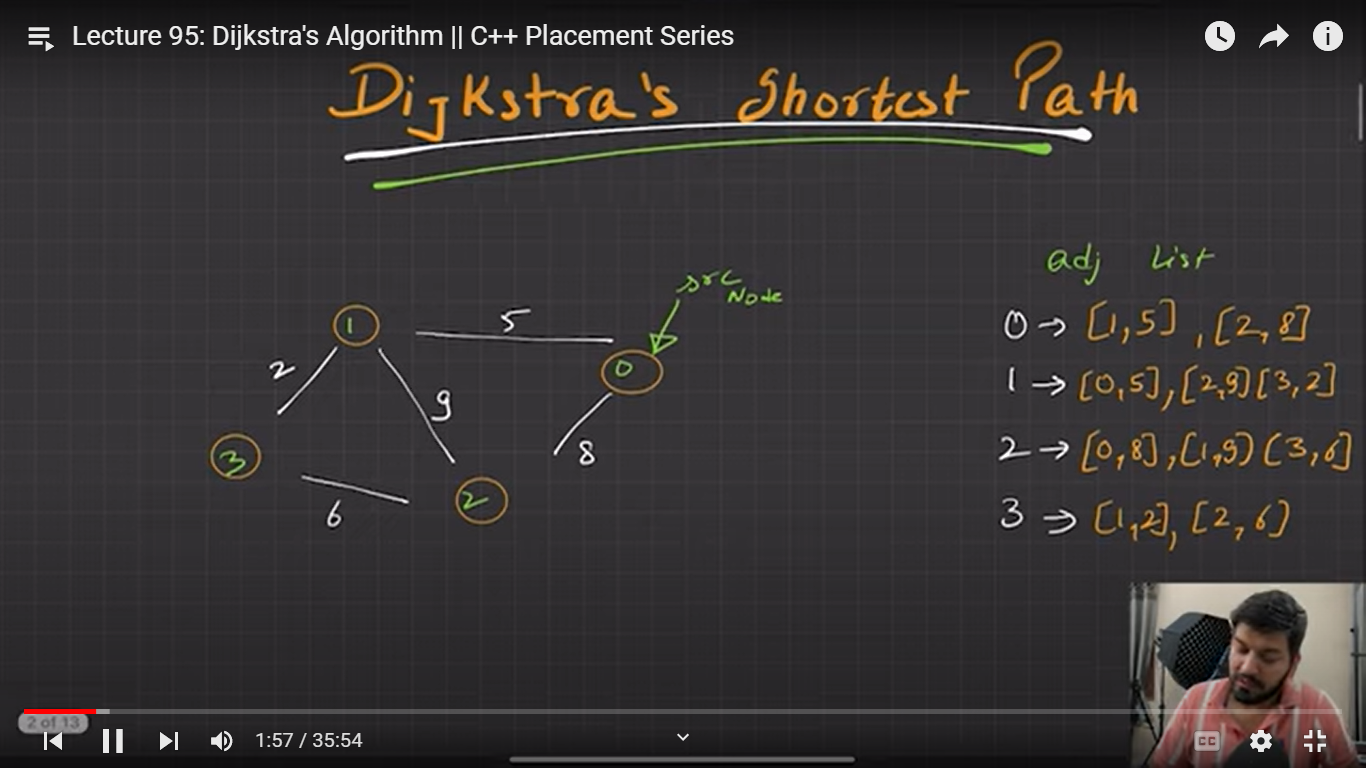 Lecture 95: Dijkstra's Algorithm || C++ Placement Series
Dijkstra's Shortest Path
adj List
src
Node
1
5
0
2
9
8
3
6
2
0 → [1,5], [2,8]
1 → [0,5], [2,9] [3,2]
2 → [0,8], [1,9) [3,6]
3 → [1,2], [2,6)
2 of 13
1:57 / 35:54
CC